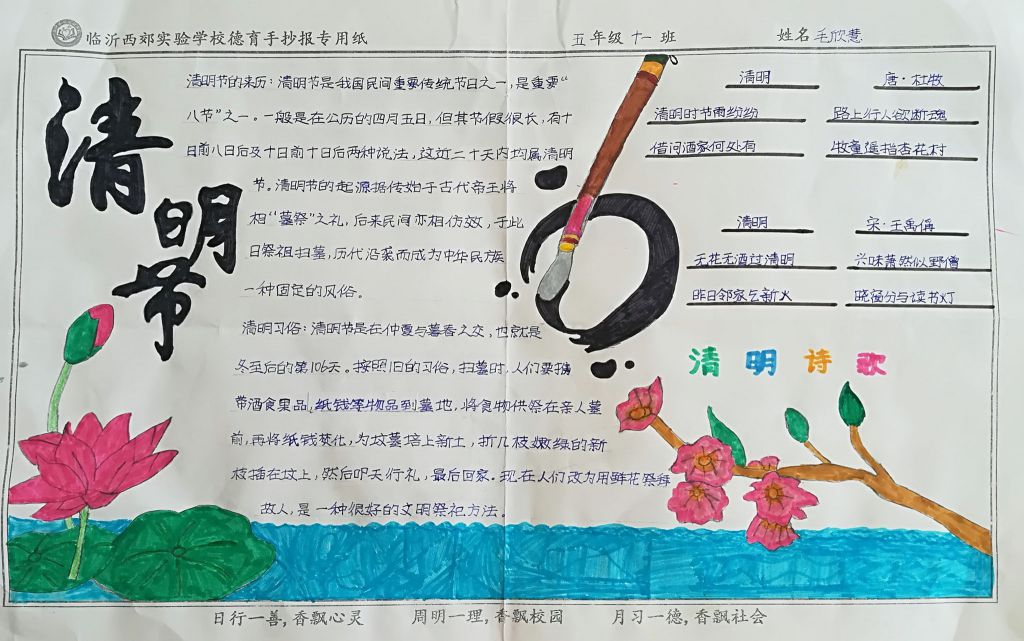 临沂西郊实验学校德育手抄报专用纸
五年级 十一 班
姓名 毛欣慧
清明节
清明节的来历：清明节是我国民间重要传统节日之一，是重要“
八节”之一。一般是在公历的四月五日，但其节假很长，有十
日前八日后及十日前十日后两种说法，这近二十天内均属清明
节。清明节的起源据传始于古代帝王将
相“墓祭”之礼，后来民间亦相仿效，于此
日祭祖扫墓，历代沿袭而成为中华民族
一种固定的风俗。
清明习俗：清明节是在仲夏与暮春之交，也就是
冬至后的第106天。按照旧的习俗，扫墓时，人们要携
带酒食果品，纸钱等物品到墓地，将食物供祭在亲人墓
前，再将纸钱焚化，为坟墓培上新土，折几枝嫩绿的新
枝插在坟上，然后叩天行礼，最后回家。现在人们改为用鲜花祭拜
故人，是一种很好的文明祭祀方法。
清明 唐·杜牧
清明时节雨纷纷 路上行人欲断魂
借问酒家何处有 牧童遥指杏花村
清明 宋·王禹偁
无花无酒过清明 兴味萧然似野僧
昨日邻家乞新火 晓窗分与读书灯
清明诗歌
日行一善，香飘心灵 周明一理，香飘校园 月习一德，香飘社会